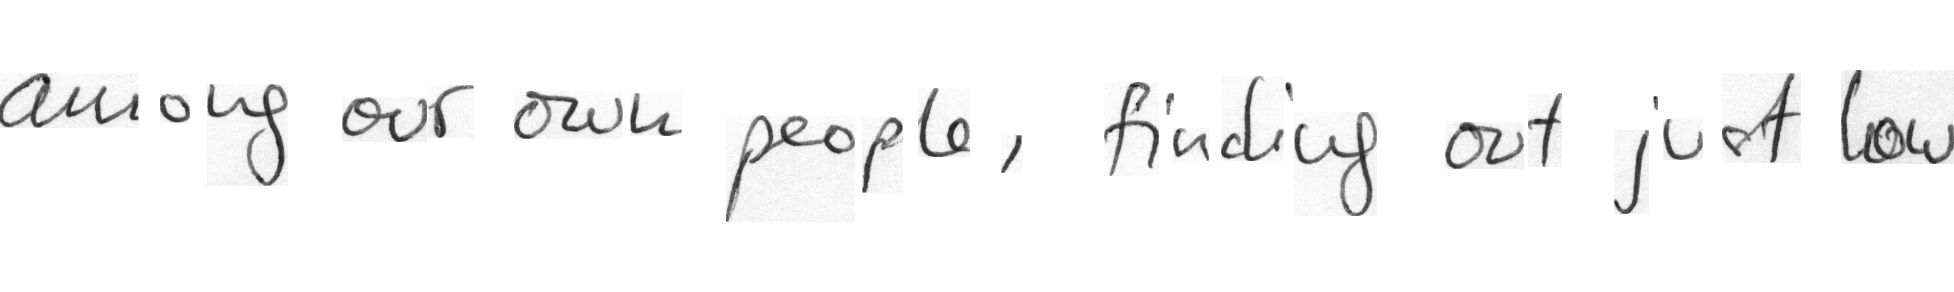 among our own people, finding out just how